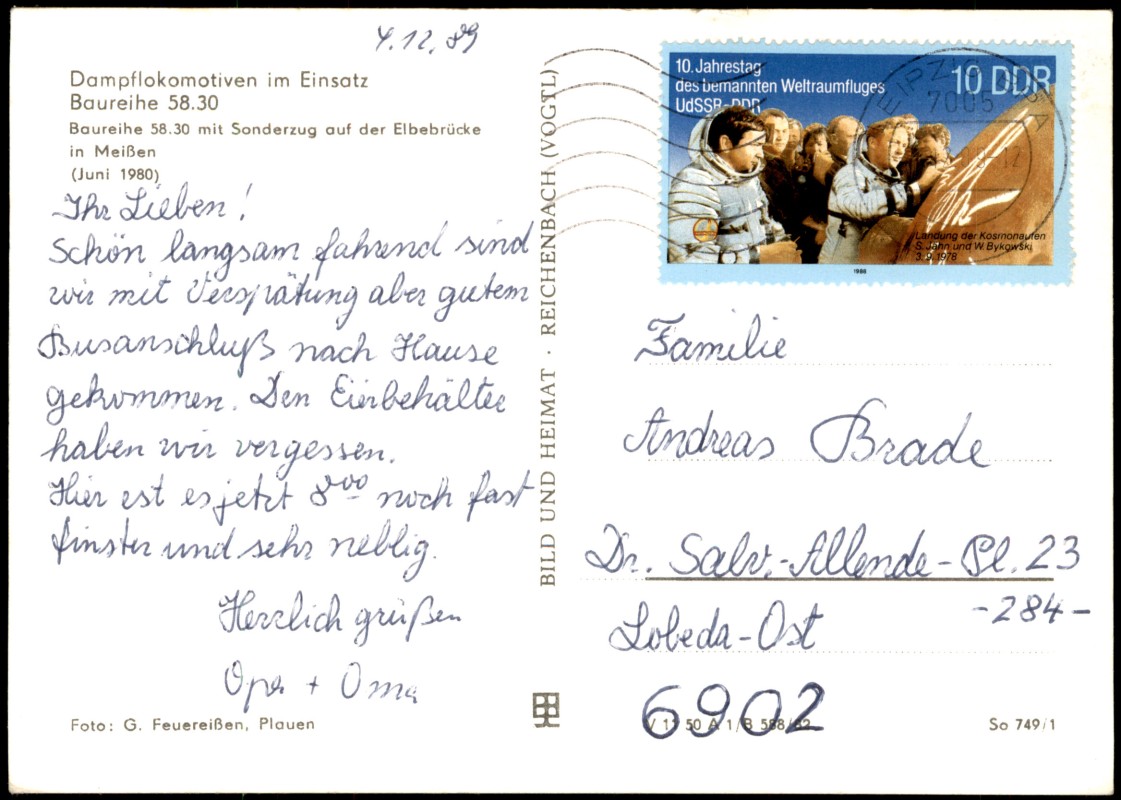 4.12.89
Dampflokomotiven im Einsatz
Baureihe 58.30
Baureihe 58.30 mit Sonderzug auf der Elbebrücke
in Meißen
(Juni 1980)
Ihr Lieben!
Schön langsam fahrend sind
wir mit Verspätung aber gutem
Busanschluß nach Hause
gekommen. Den Eierbehälter
haben wir vergessen.
Hier ist es jetzt 8⁰⁰ noch fast
finster und sehr neblig.
Herzlich grüßen
Opa + Oma
Foto: G. Feuereißen, Plauen
BILD UND HEIMAT · REICHENBACH (VOGTL)
10. Jahrestag
des bemannten Weltraumfluges
UdSSR-DDR
10 DDR
LEIPZIG
7005
Landung der Kosmonauten
S. Jähn und W. Bykowski
3.9.1978
1988
Familie
Andreas Brade
Dr. Salv.-Allende-Pl. 23
-284-
Lobeda-Ost
6902
V 11 50 A 1/B 588/82
So 749/1